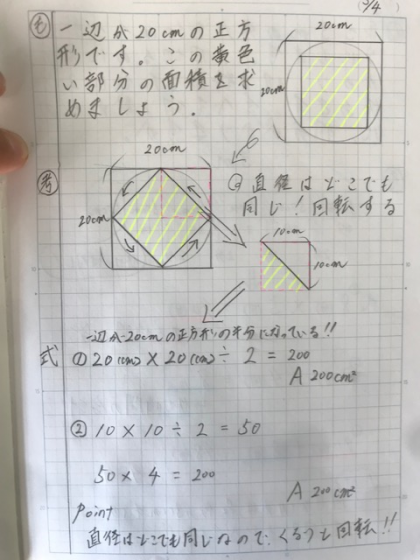 5/4
も 一辺が20cmの正方
形です。この黄色
い部分の面積を求
めましょう。
20cm
20cm
考
20cm
20cm
直径はどこでも
同じ！回転する
10cm
10cm
一辺が20cmの正方形の半分になっている!!
式 ①20(cm)×20(cm)÷2=200
A 200cm²
②10×10÷2=50
50×4=200
A 200cm²
Point
直径はどこでも同じなので、くるっと回転!!